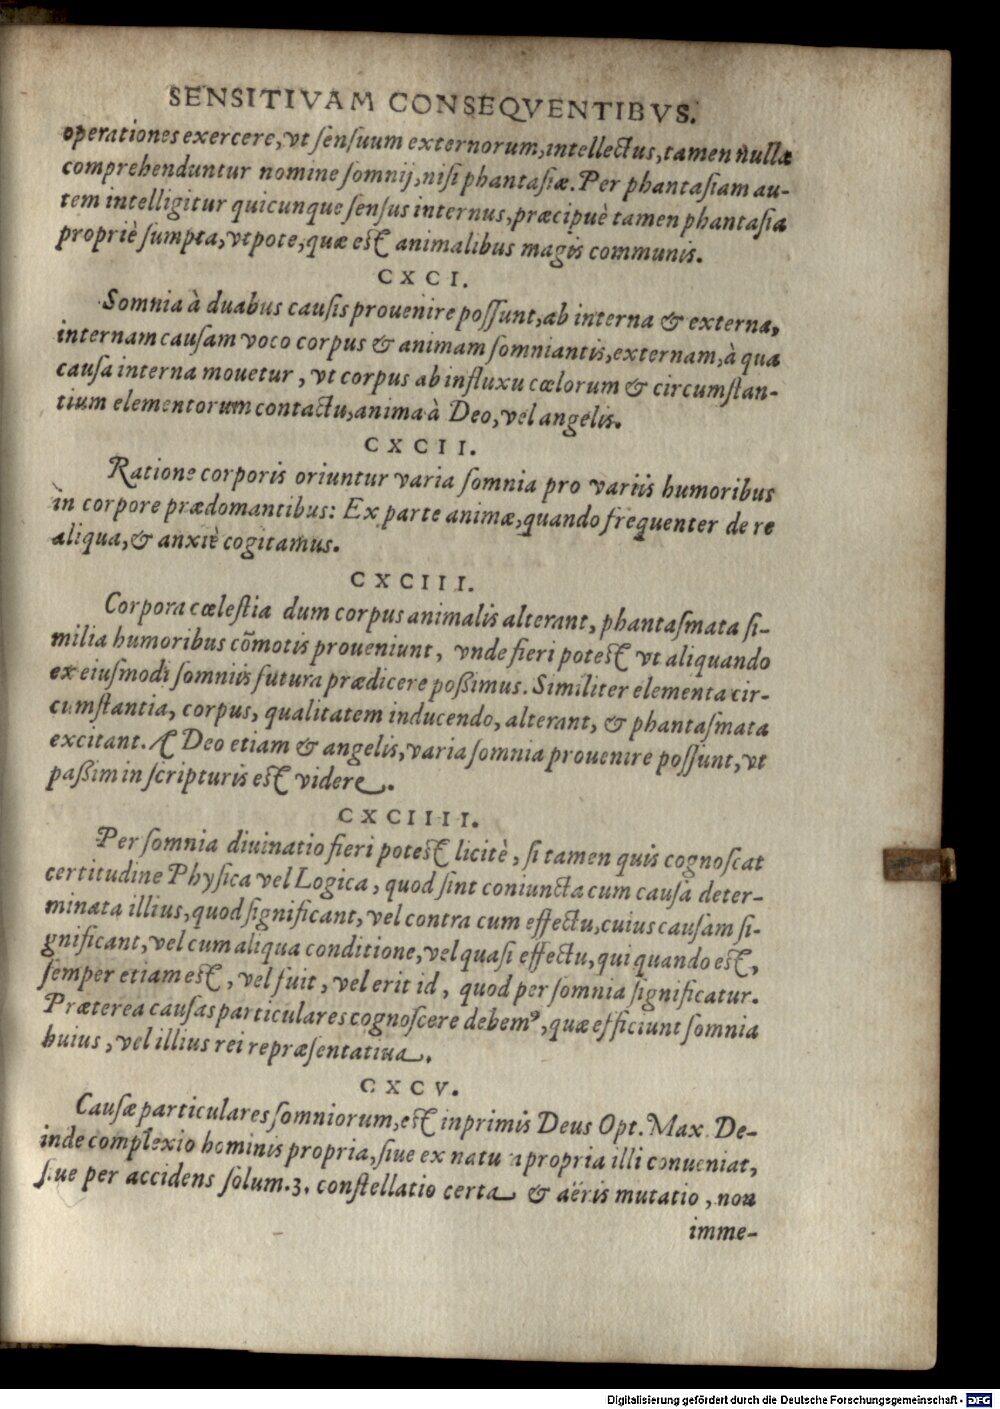 SENSITIVAM CONSEQVENTIBVS.
operationes exercere, vt sensuum externorum, intellectus, tamen nullæ
comprehenduntur nomine somnij, nisi phantasiæ. Per phantasiam au-
tem intelligitur quicunque sensus internus, præcipuè tamen phantasia
propriè sumpta, vtpote, quæ est animalibus magis communis.
CXCI.
Somnia à duabus causis prouenire possunt, ab interna & externa,
internam causam voco corpus & animam somniantis, externam, à qua
causa interna mouetur, vt corpus ab influxu cœlorum & circumstan-
tium elementorum contactu, anima à Deo, vel angelis.
CXCII.
Ratione corporis oriuntur varia somnia pro variis humoribus
in corpore prædomantibus: Ex parte animæ, quando frequenter de re
aliqua, & anxiè cogitamus.
CXCIII.
Corpora cœlestia dum corpus animalis alterant, phantasmata si-
milia humoribus cōmotis proueniunt, vnde fieri potest vt aliquando
ex eiusmodi somniis futura prædicere poßimus. Similiter elementa cir-
cumstantia, corpus, qualitatem inducendo, alterant, & phantasmata
excitant. A Deo etiam & angelis, varia somnia prouenire possunt, vt
paßim in scripturis est videre.
CXCIIII.
Per somnia diuinatio fieri potest licitè, si tamen quis cognoscat
certitudine Physica vel Logica, quod sint coniuncta cum causa deter-
minata illius, quod significant, vel contra cum effectu, cuius causam si-
gnificant, vel cum aliqua conditione, vel quasi effectu, qui quando est,
semper etiam est, vel fuit, vel erit id, quod per somnia significatur.
Præterea causas particulares cognoscere debemꝰ, quæ efficiunt somnia
huius, vel illius rei repræsentatiua.
CXCV.
Causæ particulares somniorum, est inprimis Deus Opt. Max. De-
inde complexio hominis propria, siue ex natura propria illi conueniat,
siue per accidens solum. 3. constellatio certa & aëris mutatio, non
imme-
Digitalisierung gefördert durch die Deutsche Forschungsgemeinschaft - DFG